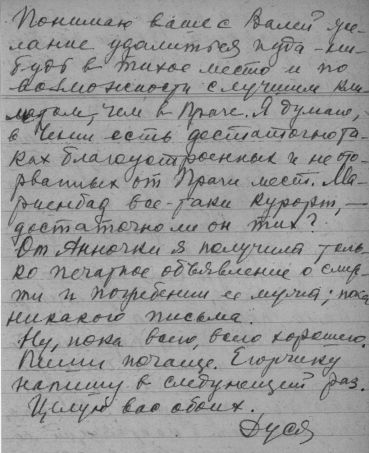 Понимаю ваше с Валей же-
лание удалиться куда-ни-
будь в тихое место и по
возможности с лучшим кли-
матом, чем в Праге. Я думаю,
в Чехии есть достаточно та-
ких благоустроенных и не ото-
рванных от Праги мест. Ма-
риенбад все-таки курорт, —
достаточно ли он тих?
От Анночки я получила толь-
ко печатное объявление о смер-
ти и погребении ее мужа; пока
никакого письма.
Ну, пока всего, всего хорошего.
Пиши почаще. Егорчику
напишу в следующий раз.
Целую вас обоих.
Дуся